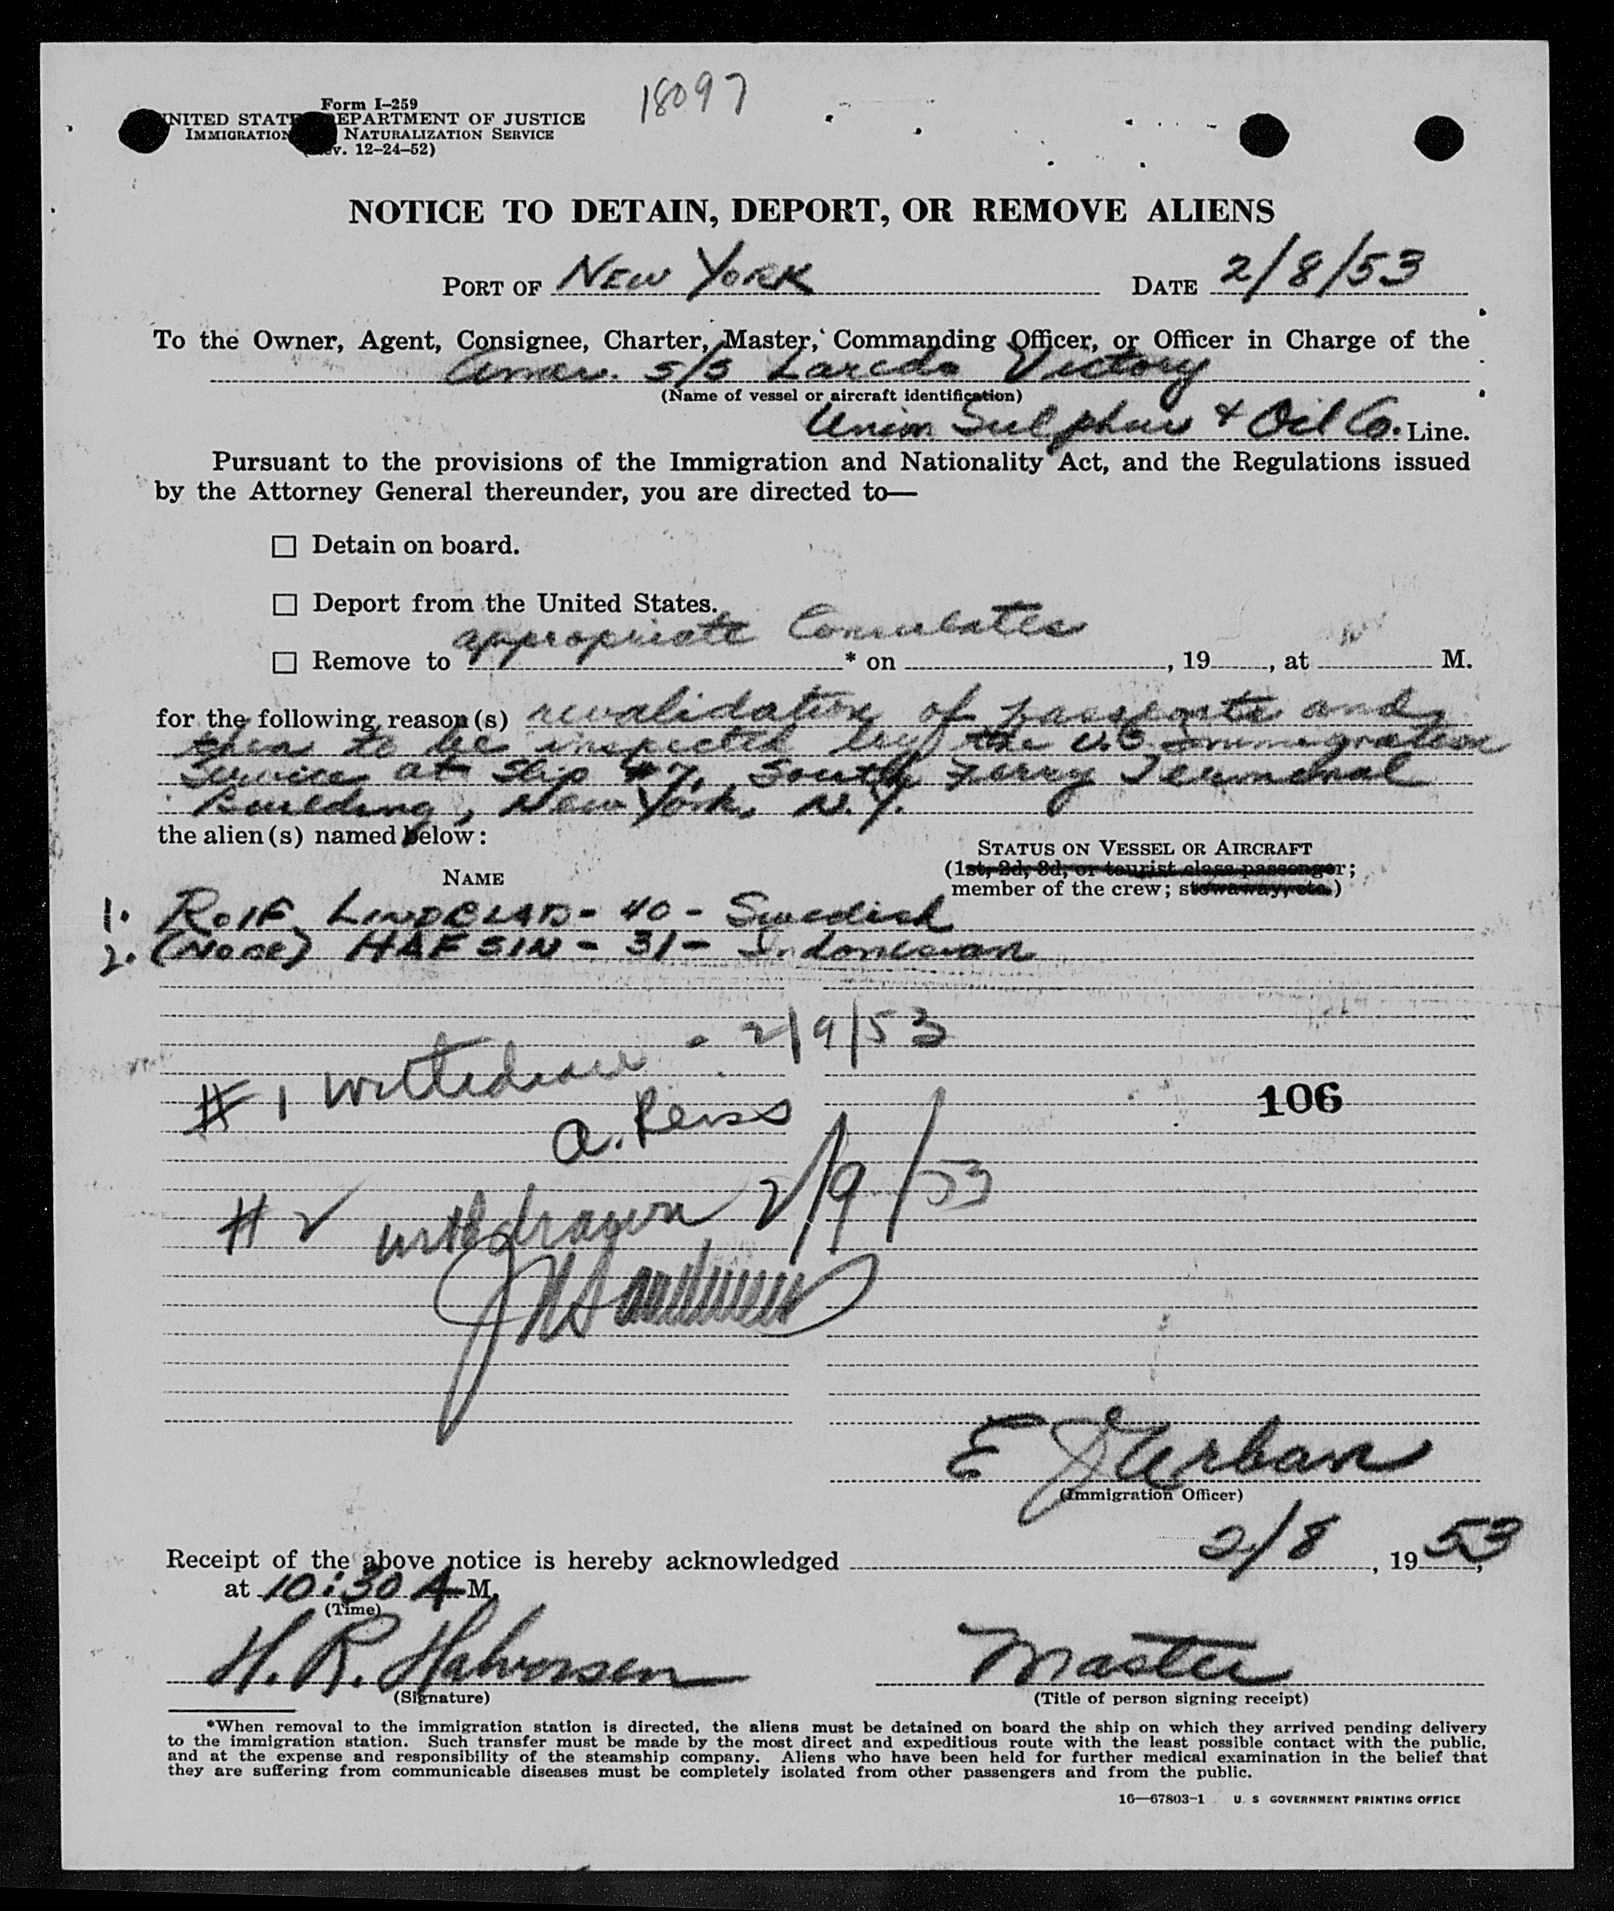 18097
Form I-259
UNITED STATES DEPARTMENT OF JUSTICE
IMMIGRATION NATURALIZATION SERVICE
(Rev. 12-24-52)
NOTICE TO DETAIN, DEPORT, OR REMOVE ALIENS
PORT OF New York DATE 2/8/53
To the Owner, Agent, Consignee, Charter, Master, Commanding Officer, or Officer in Charge of the
Amer. S/S Laredo Victory
(Name of vessel or aircraft identification)
Union Sulphur & Oil Co. Line.
Pursuant to the provisions of the Immigration and Nationality Act, and the Regulations issued
by the Attorney General thereunder, you are directed to—
☐ Detain on board.
☐ Deport from the United States.
☐ Remove to appropriate Consulates * on , 19 , at M.
for the following reason(s) revalidation of passports and
then to be inspected by the U.S. Immigration
Service at Slip #7, South Ferry Terminal
Building, New York, N.Y.
the alien(s) named below:
STATUS ON VESSEL OR AIRCRAFT
NAME
(1st, 2d, 3d, or tourist class passenger;
member of the crew; stowaway, etc.)
1. Rolf LINDBLAD - 40 - Swedish
2. (None) HAFSIN - 31 - Indonesian
#1 withdrawn - 2/9/53
A. Reiss
106
#2 withdrawn 2/9/53
E J Urban
(Immigration Officer)
Receipt of the above notice is hereby acknowledged 2/8, 1953,
at 10:30 A M.
(Time)
H. R. Halvorsen Master
(Signature) (Title of person signing receipt)
*When removal to the immigration station is directed, the aliens must be detained on board the ship on which they arrived pending delivery
to the immigration station. Such transfer must be made by the most direct and expeditious route with the least possible contact with the public,
and at the expense and responsibility of the steamship company. Aliens who have been held for further medical examination in the belief that
they are suffering from communicable diseases must be completely isolated from other passengers and from the public.
16—67803-1 U. S GOVERNMENT PRINTING OFFICE